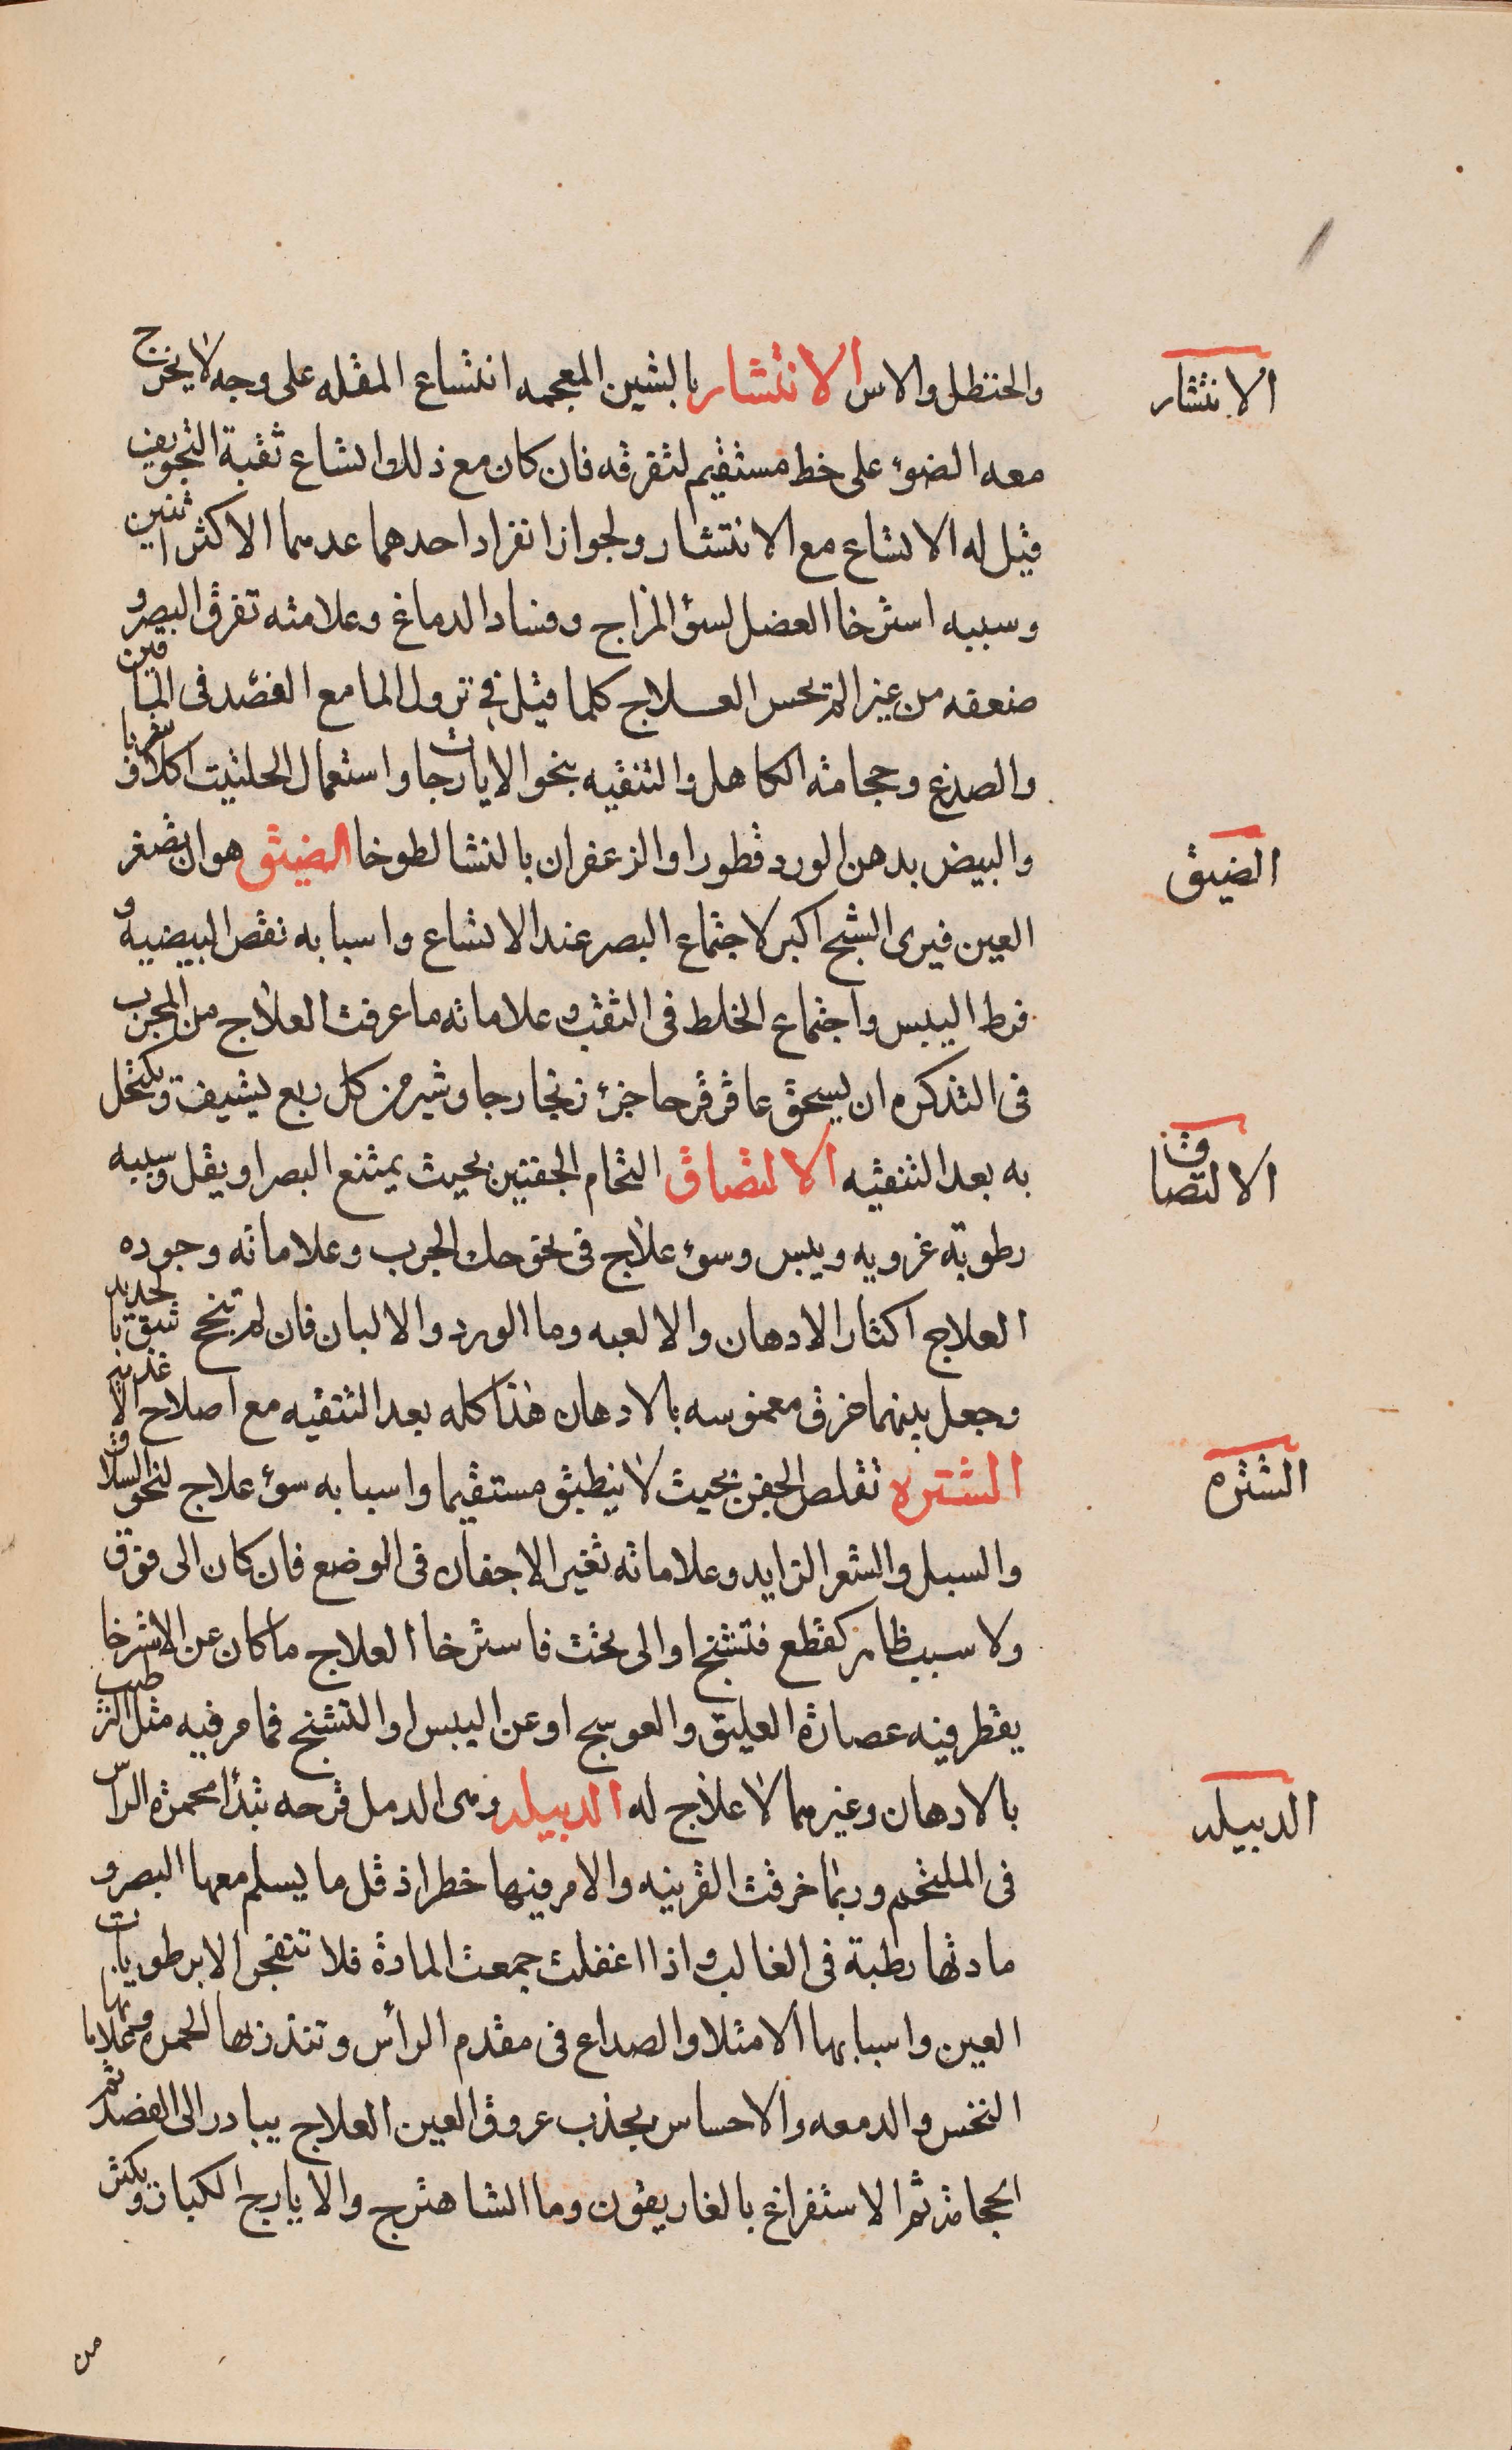 والحنظل والاس الانتشار بالشين المعجمه انتساع المقله على وجه لا يخرج
معه الضوء على خط مستقيم لتفرقه فان كان مع ذلك اتساع ثقبة التجويف
قيل له الاتساع مع الانتشار ولجواز انفراد احدهما عدهما الاكثر اثنين
وسببه استرخا العضل لسؤ المزاج وفساد الدماغ وعلامته تفرق البصر و
ضعفه من غير الم يحس العلاج كلما قيل في نزول الما مع الفصد في الماقين
والصدغ وحجامة الكاهل والتنقيه بنحو الايارجات واستعمال الحلتيت اكلا
والبيض بدهن الورد قطورا والزعفران بالنشا لطوخا الضيق هو ان يصغر
العين فيرى الشبح اكبر لاجتماع البصر عند الاتساع واسبابه نقص البيضيه و
فرط اليبس واجتماع الخلط في الثقب وعلاماته ما عرفت العلاج من المجرب
في التذكره ان يسحق عاقرقرحا جزء زنجار جاوشير من كل ربع يشيف ويكتحل
به بعد التنقيه الالتصاق التحام الجفنين بحيث يمتنع البصر او يقل وسببه
رطوبة غرويه ويبس وسوء علاج في نحو حك الجرب وعلاماته وجوده
العلاج اكثار الادهان والالعبه وما الورد والالبان فان لم تنجح شق بالحديد
وجعل بينهما خرق مغموسه بالادهان هذا كله بعد التنقيه مع اصلاح الاغذيه
الشتره تقلص الجفن بحيث لا ينطبق مستقيما واسبابه سوء علاج لنحو السلاق
والسبل والشعر الزايد وعلاماته تغير الاجفان في الوضع فان كان الى فوق
ولا سبب ظاهر كقطع فتشنج او الى تحت فاسترخا العلاج ما كان عن الاسترخا
يقطر فيه عصارة العليق والعوسج او عن اليبس او التشنج فما مر فيه مثل الترطيب
بالادهان وغيرهما لا علاج له الدبيله وهى الدمل قرحه تبدأ محمرة الراس
في الملتحم وربما خرقت القرنيه والامر فيها خطر اذ قل ما يسلم معها البصر و
مادتها رطبة في الغالب واذا اغفلت جمعت المادة فلا تنفجر الا برطوبات
العين واسبابها الامتلا والصداع في مقدم الرأس وتنذر بها الحمره وعلاماتها
النخس والدمعه والاحساس بجذب عروق العين العلاج يبادر الى الفصد ثم
الحجامة ثم الاستفراغ بالغاريقون وما الشاهترج والايارج الكبار ويكثر
من
الانتشار
الضيق
الالتصاق
الشتره
الدبيله